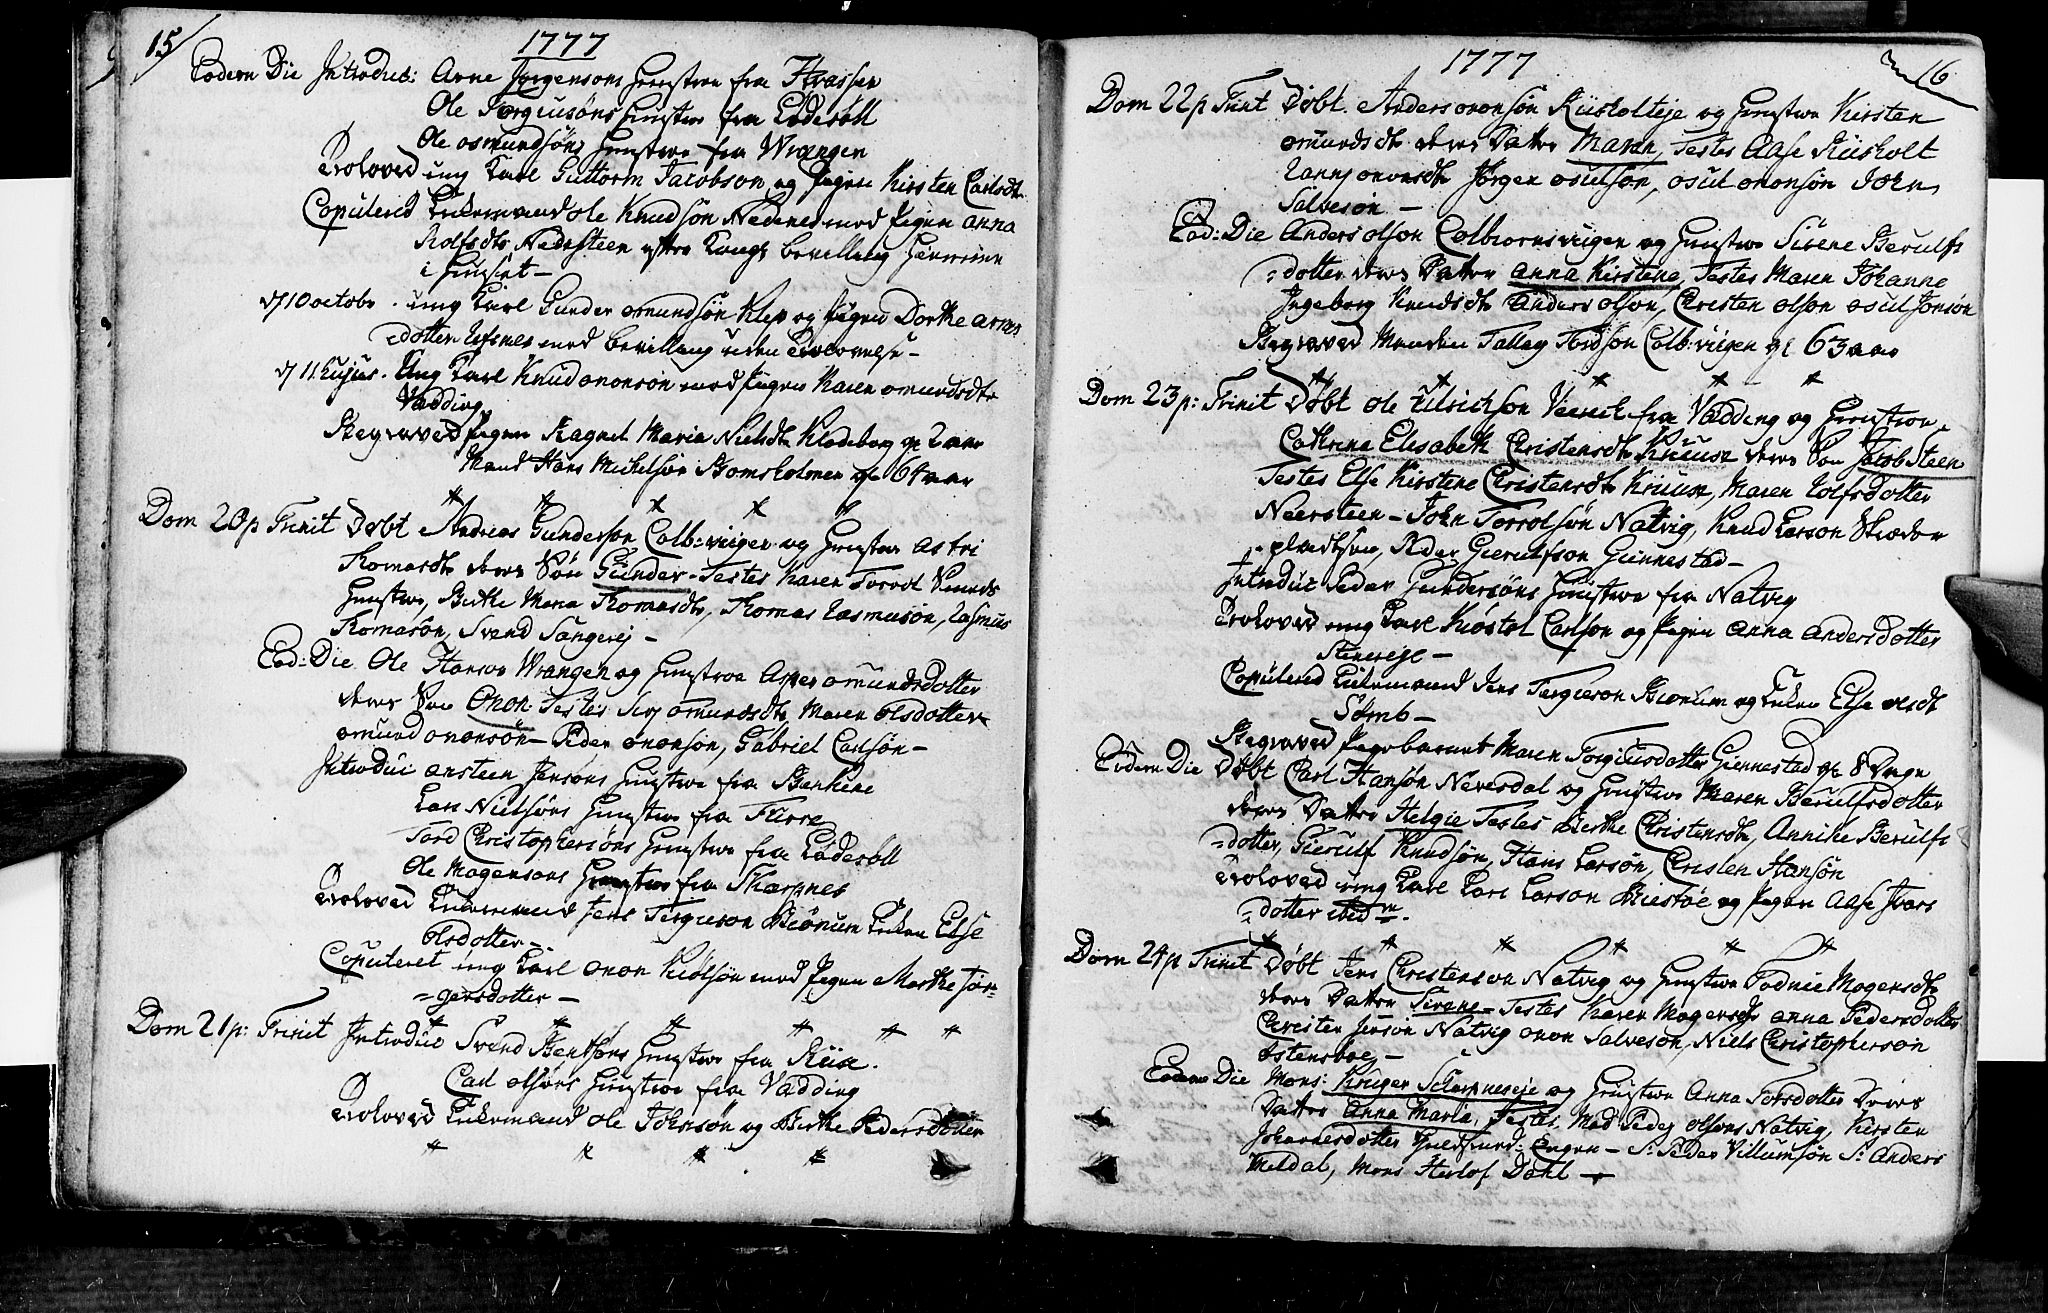 15/
1777
Eodem Die Introduc: Arne Jørgensøns Hustroe fra Strasser
Ole Torgiusøns Hustroe fra Lødesøll
Ole Osmundsøns Hustroe fra Wrangen
Troloved ung Karl Guttorm Jacobsøn og Pigen Kirsten Carlsdt
Copulered Enkemand Ole Knudsøn Nedenes med Pigen Anna
Rolfsdt Nedesteen efter Kongl bevilling hiemme
i Huuset –
d 10 octobr. ung Karl Gunder omundsøn Klep og Pigen Dorthe Arnes
=dotter Ufsnes med bevilling uden Trolovelse –
d 11 hujus. Ung Karl Knud ononsøn med Pigen Karen omundsdt
Vadding
Begraved Pigen Ragnel Maria Nielsdt Klodeborg gl 2 aar
Mand Hans Michelsøn Bomsholmen gl 64 aar
Dom 20 p Trinit Døbt Andreas Gundersøn Colb:viigen og Hustroe Astri
Thomasdt deres Søn Gunder – Testes Karen Torvel Svends
Hustroe, Birthe Maria Thomasdt, Thomas Rasmusøn, Rasmus
Thomasøn, Svend Songeeej –
Eod: Die Ole Hansøn Wrangen og Hustroe Asper omundsdotter
deres Søn Onon Testes Siri omundsdt, Maren Olsdotter
omund ononsøn – Peder ononsøn, Gabriel Carlsøn –
Introduc ansteen Jensøns Hustroe fra Benkene
Lars Nielsøns Hustroe fra Furre
Tord Christophersøns Hustroe fra Lødesøll
Ole Mogensøns Hustroe fra Skarpnes
Troloved Enkemand Jens Tergiesøn Biønum Enken Else
Olsdotter –
Copuleret ung Karl Onon Kiølsøn med Pigen Marthe Jør=
=gensdotter –
Dom 21 p: Trinit Introduc Svend Bentsøns Hustroe fra Riise.
Carl olsøns Hustroe fra Vadding
Troloved Enkemand Ole Johnsøn og Birthe Pedersdotter
1777
16
Dom 22 p Trinit Døbt. Anders ononsøn Riisholteje og Hustroe Kirsten
omundsdt deres Datter Maren, Testes Aase Riisholt
Jørgen osulsøn, osul ononsøn John
Salvesøn –
Eod: Die Anders olsøn Colbiørnsviigen og Hustroe Sirene Berulfs
=dotter deres Datter Anna Kirstene, Testes Maren Johanne
Ingeborg Knudsdt Anders olsøn, Christen olsøn osul Jonsøn
Begraved Manden Tallag Tordsøn Colb:viigen gl 63 aar
Dom 23 p: Trinit Døbt Ole Ulrichsøn fra Vadding og Hustroe
Cathrine Elisabeth Christensdt Kruuse deres Søn Jacob Steen
Testes Else Kirstene Christensdt Kruuse, Maren Rolfsdotter
Neersteen – John Torrolsøn Natvig, Knud Larsøn Skræder
=pladtsen, Peder Gierulfsøn Giennestad –
Introduc Peder Gundersøns Hustroe fra Natvig
Troloved ung Karl Kiøstol Carlsøn og Pigen Anna Andersdotter
Steneeje –
Copulered Enkemand Jens Tergiesøn Biønum og Enken Else olsdt
Sømb –
Begraved Pigebarnet Maren Torgiusdotter Giennestad gl 8 Dage
Eodem Die Døbt Carl Hansøn Neversdal og Hustroe Maren Berulfsdotter
deres Datter Helgie Testes Birthe Christensdt, Annike Berulfs
=dotter, Gierulf Knudsøn, Hans Larsøn, Christen Hansøn
Troloved ung Karl Lars Larsøn Buestøe og Pigen Aase Ivars
=dotter ibidm.
Dom 24 p Trinit Døbt Jens Christensøn Natvig og Hustroe Todnie Mogensdt
deres Datter Sirene – Testes Karen Mogensdt Anna Pedersdotter
Christen Jensøn Natvig onon Salvesøn, Niels Christophersøn
Østensboe, –
Eodem Die Mons: Kruger Scharpneseje og Hustroe Anna Torsdotter Deres
Datter Anna Maria, Testes Mad Peder Olsøns Natvig, Kirsten
Johannesdotter Guldsmed: Engen – Sr Peder Villumsøn Sr Anders
Meldal, Mons Herlof Dahl –